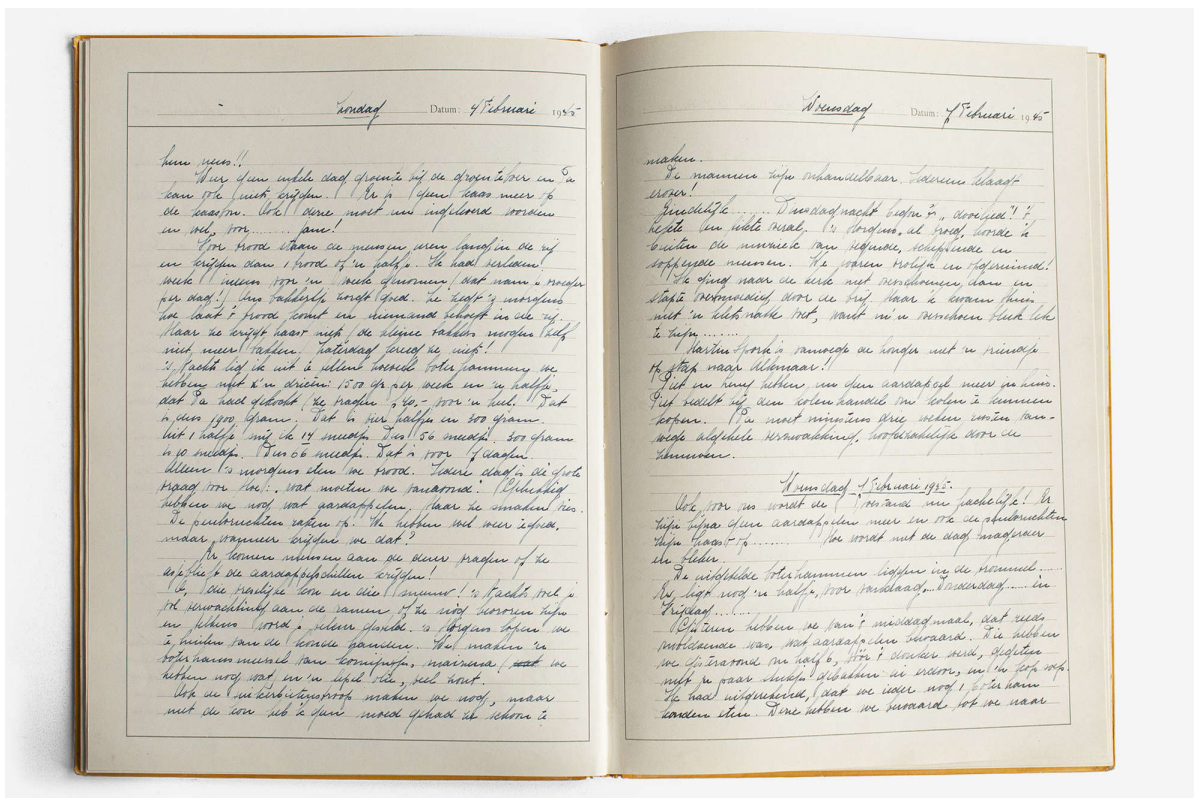 Zondag Datum: 4 Februari 1945
hun neus!!
Weer geen enkele dag groente bij de groenteboer en Pa
kan ook niets krijgen. Er is geen kaas meer op
de kaasbon. Ook deze moet nu ingeleverd worden
en wel voor........ jam!
Voor brood staan de mensen uren lang in de rij
en krijgen dan 1 brood of 'n halfje. Ik had verleden
week meus voor 'n week genomen (dat nam je vroeger
per dag!) Ons bakkertje zorgt goed. Ze zegt 's morgens
hoe laat 't brood komt en niemand behoeft in de rij.
Maar ze krijgt haast niets, de kleine bakkers mogen zelf
niet meer bakken. Zaterdag kreeg ze niets!
's Nachts lig ik uit te tellen hoeveel boterhammen we
hebben met z'n drieën: 1500 gr per week en 'n halfje,
dat Pa had gekocht (ze vragen 40,- voor 'n heel. Dat
is dus 1900 gram. Dat is vier halfjes en 300 gram.
Uit 1 halfje snij ik 14 sneedjes. Dus 56 sneedjes. 300 gram
is 10 sneedjes. Dus 66 sneedjes. Dat is voor 7 dagen.
Alleen 's morgens eten we brood. Iedere dag is de grote
vraag voor Moe: „wat moeten we vanavond". Gelukkig
hebben we nog wat aardappelen. Maar ze smaken vies.
De peulvruchten raken op. We hebben wel weer tegoed,
maar wanneer krijgen we dat?
Er komen mensen aan de deur vragen of ze
asjeblieft de aardappelschillen krijgen!
O, die vreselijke kou en die sneeuw! 's Nachts voel je
vol verwachting aan de ramen of ze nog bevroren zijn
en telkens word je teleur gesteld. 's Morgens lopen we
te huilen van de koude handen. We maken 'n
boterhamsmeersel van komijnzaad, maizena we
hebben nog wat en 'n lepel olie, veel zout.
Ook de suikerbietenstroop maken we nog, maar
met de kou heb ik geen moed gehad ze schoon te
Woensdag Datum: 7 Februari 1945
maken.
De mannen zijn onhandelbaar. Iedereen klaagt
erover!
Eindelijk........ Dinsdagnacht begon 't „dooilied"! 't
lekte en tikte overal. 's Morgens, al vroeg, hoorde ik
buiten de muziek van vegende, scheppende en
soppende mensen. We waren vrolijk en opgeruimd!
Ik ging naar de kerk met overschoenen aan en
stapte overmoedig door de brij. Maar ik kwam thuis
met 'n kletsnatte voet, want m'n overschoen bleek lek
te zijn........
Martin Spork is vanwege de honger met 'n vriendje
op stap naar Alkmaar!
Piet en hebben nu geen aardappel meer in huis.
Piet bedelt bij den kolenhandel om kolen te kunnen
kopen. Pa moet minstens drie weken rusten van-
wege algehele verzwakking, hoofdzakelijk door de
zenuwen.
Woensdag 7 Februari 1945.
Ook voor ons wordt de toestand nu hachelijk! Er
zijn bijna geen aardappelen meer en ook de peulvruchten
zijn haast op........ Moe wordt met de dag magerder
en bleker.
De uitgetelde boterhammen liggen in de trommel.....
Er ligt nog 'n halfje, voor vandaag, Donderdag.... en
Vrijdag........
Gisteren hebben we van 't middagmaal, dat reeds
onvoldoende was, wat aardappelen bewaard. Die hebben
we gisteravond om half 6, vóór 't donker werd, gegeten
met 'n paar stukjes gebakken ui erdoor, en 'n kop soep.
Ik had uitgerekend, dat we ieder nog 1 boterham
konden eten. Deze hebben we bewaard tot we naar